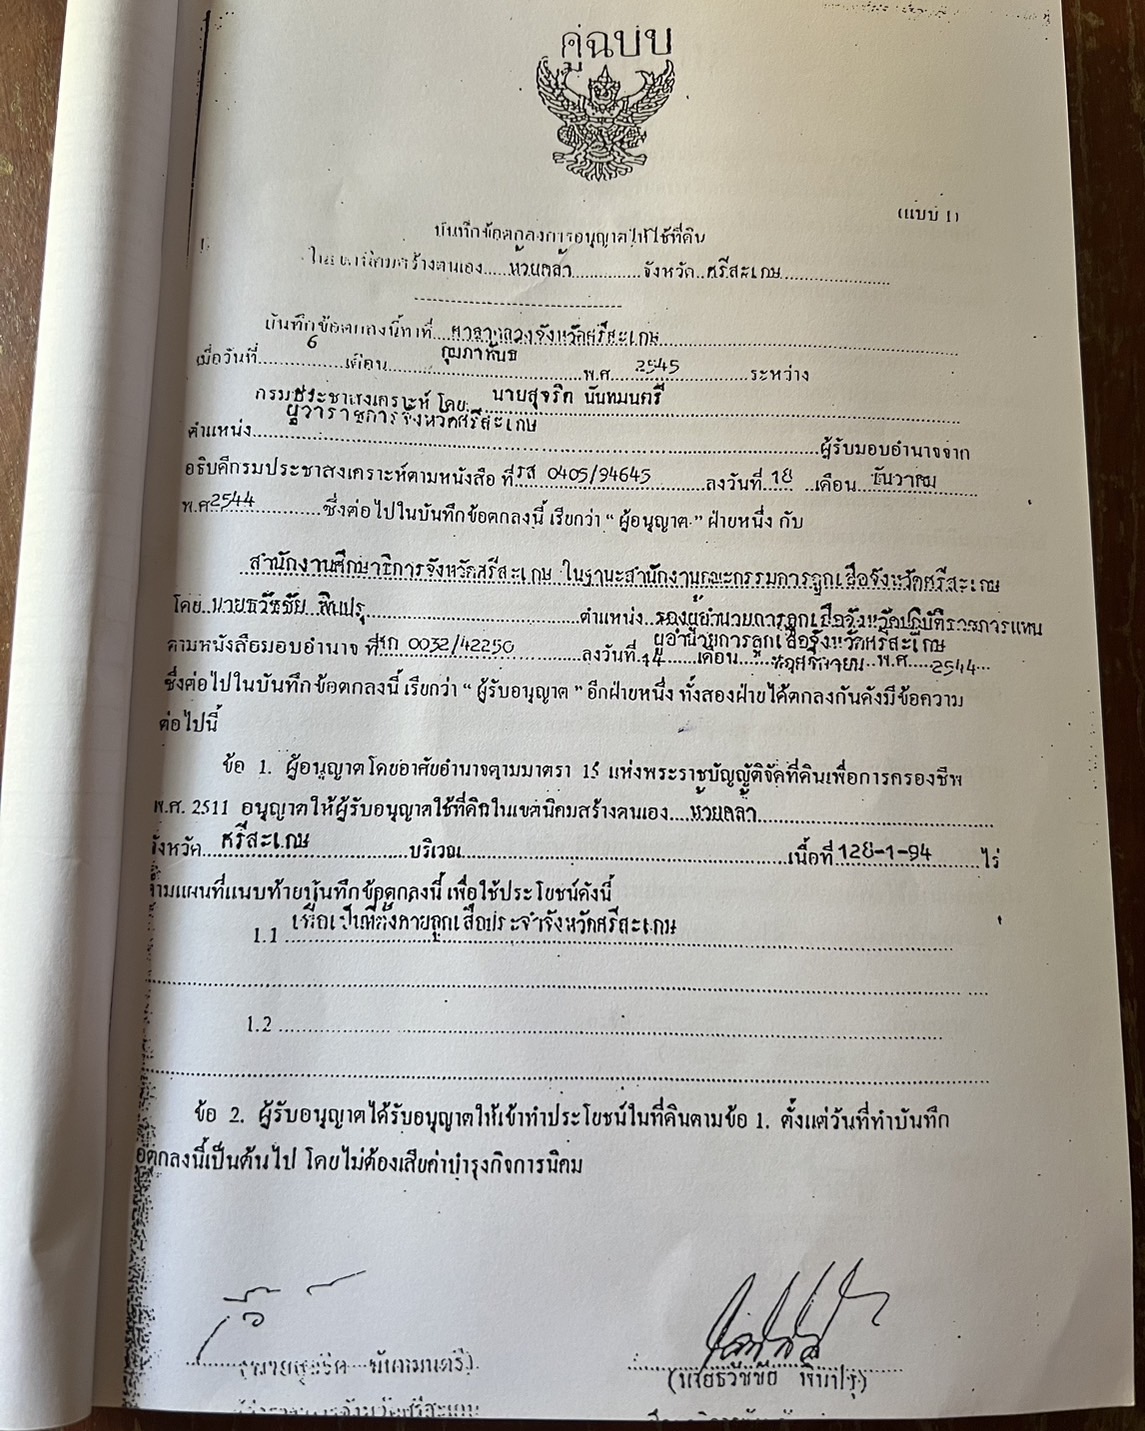 คู่ฉบับ
(แบบ 1)
บันทึกข้อตกลงการอนุญาตให้ใช้ที่ดิน
ในเขตนิคมสร้างตนเอง....ห้วยคล้า............จังหวัด..ศรีสะเกษ
บันทึกข้อตกลงนี้ทำที่ ศาลากลางจังหวัดศรีสะเกษ
เมื่อวันที่ 6 เดือน กุมภาพันธ์ พ.ศ. 2545 ระหว่าง
กรมประชาสงเคราะห์ โดย นายสุจริต นันทมนตรี
ตำแหน่ง ผู้ว่าราชการจังหวัดศรีสะเกษ ผู้รับมอบอำนาจจาก
อธิบดีกรมประชาสงเคราะห์ตามหนังสือ ที่ รส 0405/34645 ลงวันที่ 18 เดือน ธันวาคม
พ.ศ 2544 ซึ่งต่อไปในบันทึกข้อตกลงนี้ เรียกว่า “ ผู้อนุญาต ” ฝ่ายหนึ่ง กับ
สำนักงานศึกษาธิการจังหวัดศรีสะเกษ ในฐานะสำนักงานคณะกรรมการลูกเสือจังหวัดศรีสะเกษ
โดย นายธวัชชัย ตำแหน่ง รองผู้อำนวยการลูกเสือจังหวัดปฏิบัติราชการแทน
ผู้อำนวยการลูกเสือจังหวัดศรีสะเกษ
ตามหนังสือมอบอำนาจ ที่ ศก 0032/42250 ลงวันที่ 14 เดือน พฤศจิกายน พ.ศ. 2544
ซึ่งต่อไปในบันทึกข้อตกลงนี้ เรียกว่า “ ผู้รับอนุญาต ” อีกฝ่ายหนึ่ง ทั้งสองฝ่ายได้ตกลงกันดังมีข้อความ
ต่อไปนี้
ข้อ 1. ผู้อนุญาตโดยอาศัยอำนาจตามมาตรา 15 แห่งพระราชบัญญัติจัดที่ดินเพื่อการครองชีพ
พ.ศ. 2511 อนุญาตให้ผู้รับอนุญาตใช้ที่ดินในเขตนิคมสร้างตนเอง ห้วยคล้า
จังหวัด ศรีสะเกษ บริเวณ เนื้อที่ 128-1-94 ไร่
ตามแผนที่แนบท้ายบันทึกข้อตกลงนี้ เพื่อใช้ประโยชน์ดังนี้
1.1 เพื่อเป็นที่ตั้งค่ายลูกเสือประจำจังหวัดศรีสะเกษ
1.2
ข้อ 2. ผู้รับอนุญาตได้รับอนุญาตให้เข้าทำประโยชน์ในที่ดินตามข้อ 1. ตั้งแต่วันที่ทำบันทึก
ข้อตกลงนี้เป็นต้นไป โดยไม่ต้องเสียค่าบำรุงกิจการนิคม
(นายสุจริต นันทมนตรี)
(นายธวัชชัย
ผู้ว่าราชการจังหวัดศรีสะเกษ